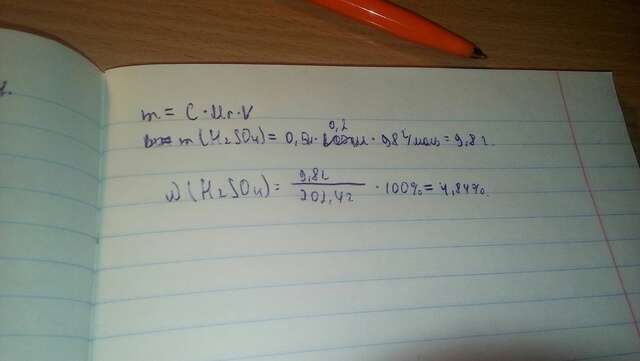 m = C·Mr·V
m(H₂SO₄) = 0,5 · 0,2 · 98 г/моль = 9,8 г.
ω(H₂SO₄) = 9,8г / 202,4г · 100% = 4,84%.